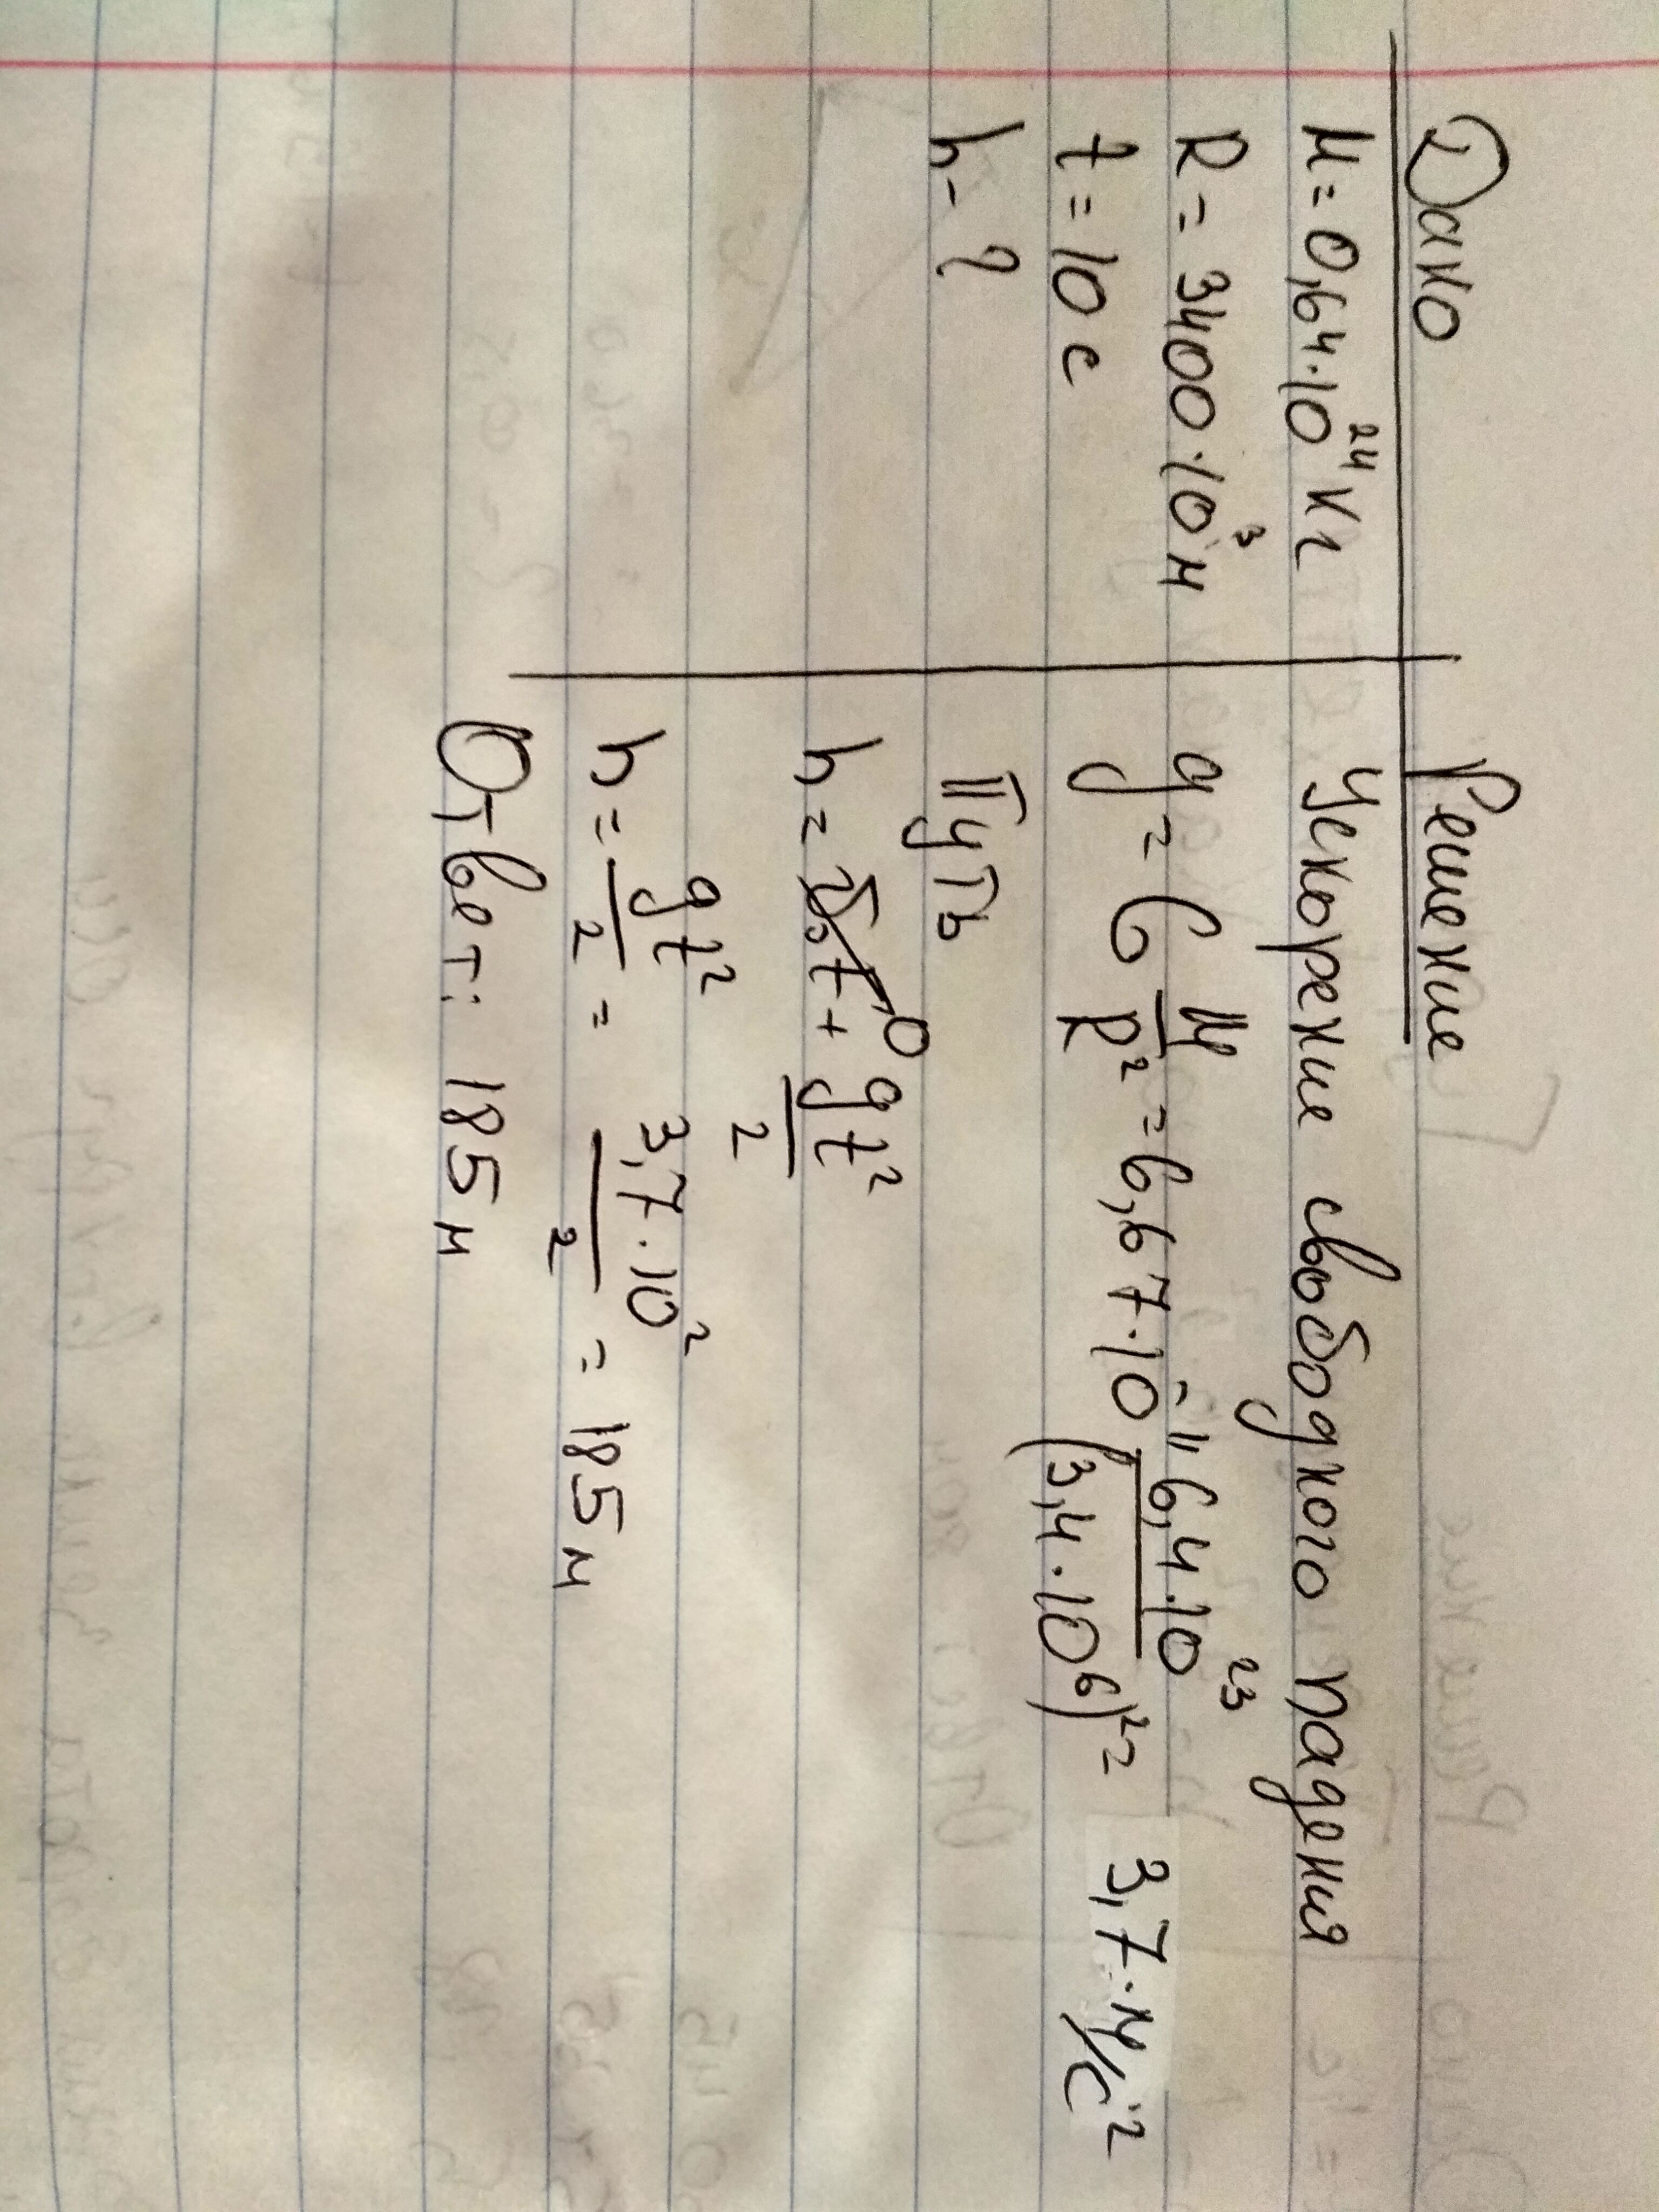 Дано
M = 0,64·10²⁴ кг
R = 3400·10³ м
t = 10 с
h - ?
Решение
Ускорение свободного падения
g = G M/R² = 6,67·10⁻¹¹ 6,4·10²³/(3,4·10⁶)² = 3,7·м/с²
Путь
h = v₀t⁰ + gt²/2
h = gt²/2 = 3,7·10²/2 = 185 м
Ответ: 185 м